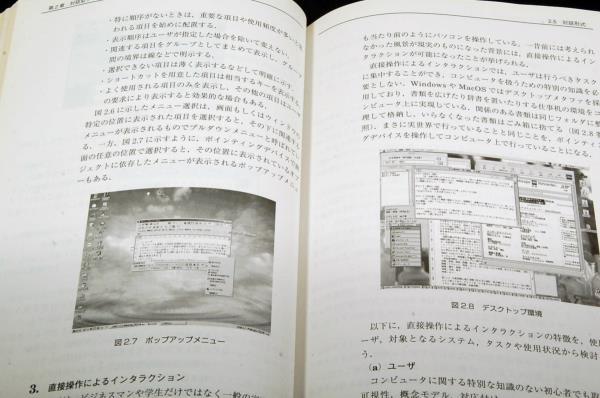 第2章 対話型
・特に順序がないときは，重要な項目や使用頻度が多い
われる項目を始めに配置する．
・表示順序はユーザが指定した場合を除いて変えない．
・関連する項目をグループとしてまとめて表示し，グループ
間の境界は線などで明示する．
・選択できない項目は薄く表示するなどして明確に示す．
・ショートカットを用意した項目は相当するキーを表示する．
・よく使用される項目のみを表示し，その他の項目はユーザ
の要求により表示すると効果的な場合もある．
図2.6に示したメニュー選択は，画面もしくはウィンドウの
特定の位置に表示された項目を選択すると，その下に関連する
メニューが表示されるものでプルダウンメニューと呼ばれてい
る．一方，図2.7に示すように，ポインティングデバイスで画
面の任意の位置で選択すると，その位置に表示されているオブ
ジェクトに依存したメニューが表示されるポップアップメニュ
ーもある．
図2.7 ポップアップメニュー
3. 直接操作によるインタラクション
ビジネスマンや学生だけではなく一般の家
2.5 対話形式
も当たり前のようにパソコンを操作している．一昔前には考えられ
なかった風景が現実のものになった背景には，直接操作によるイン
タラクションが可能になったことが挙げられる．
直接操作によるインタラクションでは，ユーザは行うべきタスク
に集中することができ，コンピュータを扱うための特別の知識を必
要としない．WindowsやMacOSではデスクトップのメタファを採
用しており，書類を広げたり辞書を置いたりする仕事机の環境をコ
ンピュータ上に実現している．関係のある書類は同じフォルダに整
理して格納し，いらなくなった書類はごみ箱に捨てる（図2.8参
照）．まさに実世界で行っていることと同じことを，ポインティン
グデバイスを操作してコンピュータ上で行っていることになる．
図2.8 デスクトップ環境
以下に，直接操作によるインタラクションの特徴を，使用
ーザ，対象となるシステム，タスクや使用状況から検討
う．
(a) ユーザ
コンピュータに関する特別な知識のない初心者でも取
可視性，概念モデル，対応付け